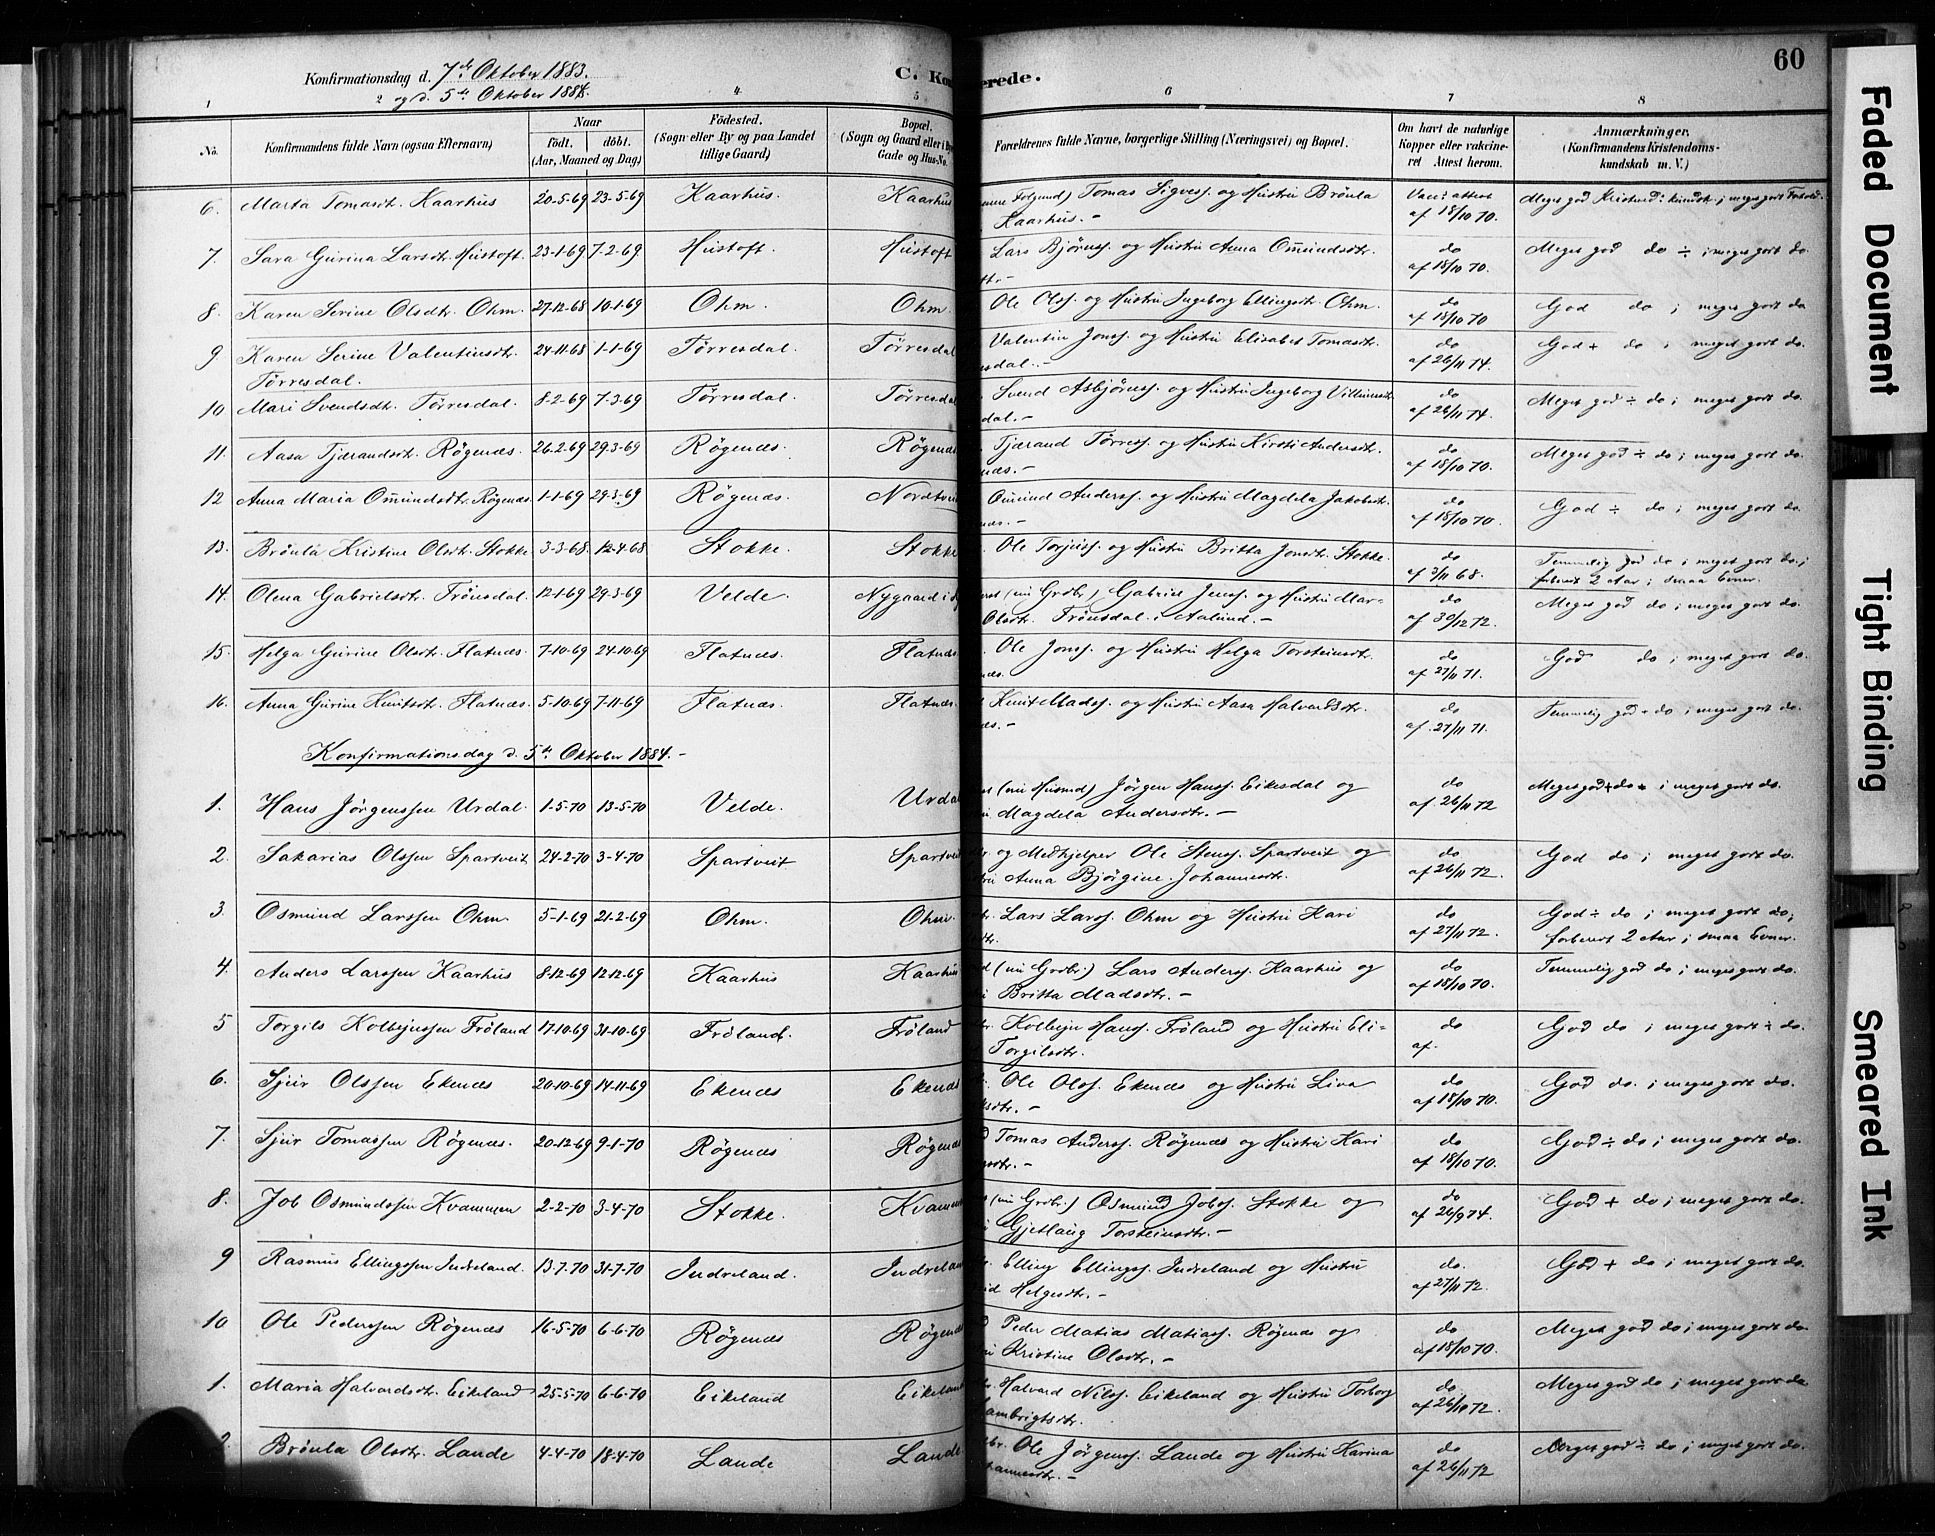 60
Konfirmationsdag d. 7de Oktober 1883.
og d. 5te Oktober 1884.
C. Kon erede.
1 2 4 5 6 7 8
No. Konfirmandens fulde Navn (ogsaa Efternavn) Naar født. døbt. (Aar, Maaned og Dag) Fødested. (Sogn eller By og paa Landet tillige Gaard) Bopæl. (Sogn og Gaard eller i By Gade og Hus-No. Forældrenes fulde Navne, borgerlige Stilling (Næringsvei) og Bopæl. Om havt de naturlige Kopper eller vakcineret Attest herom. Anmærkninger. (Konfirmandens Kristendomskundskab m. V.)
6. Marta Tomasdt. Kaarhus 20-5-69 23-5-69 Kaarhus. Kaarhus Tomas Sigvess. og Hustru Brönla
Kaarhus. - af 18/10 70. Meget god
7 Sara Gurina Larsdt. Hustoft. 23-1-69 7-2-69. Hustoft. Hustoft Lars Bjørnss. og Hustru Anna Omundsdtr.
do af 18/10 70. Meget god do ÷ ; meget godt do
8. Karen Serine Olsdtr. Ohm. 27-12-68 10-1-69 Ohm. Ohm. Ole Olss. og Hustru Ingeborg Ellingsdtr. Ohm. do af 18/10 70 God do ; meget godt do
9 Karen Serine Valentinsdtr. Tørresdal. 24-11-68 1-1-69 Tørresdal. Tørresdal Valentin Jonss. og Hustru Elisabet Tomasdtr.
dal. - do af 26/11 74. God + do ; meget godt do.
10. Mari Svendsdt. Tørresdal. 8-2-69 7-3-69 Tørresdal. Tørresdal Svend Asbjørnss. og Hustru Ingeborg
dal. - do af 26/11 74. Meget god ÷ do ; meget godt do.
11. Aasa Tjærandsdt. Røgenæs. 26-2-69 29-3-69 Røgenæs. Røgenæs Tjærand Tørress. og Hustru Kirsti Andersdt.
næs. - do af 18/10 70. Meget god ÷ do ; meget godt do.
12 Anna Maria Omundsdtr. Røgenæs 1-1-69 29-3-69 Røgenæs. Nordtvei Omund Anderss. og Hustru Magdela Jakobsdtr.
næs. - do af 18/10 70. God ÷ do ; meget godt do.
13. Brönla Kristine Olsdt. Stokke 3-3-68 12-4-68 Stokke. Stokke Ole Torjuss. og Hustru Britta Jonsdt. Stokke. do af 3/11 68. Temmelig god do ; meget godt do. ;
forberedt 2 Aar ; smaa Evner.
14. Olena Gabrielsdtr. Frönsdal. 12-1-69 29-3-69 Velde. Nygaard i (nu Grdbr.) Gabriel Jenss. og Hustru Mar-
Olsdtr. Frönsdal i Aalund. - do af 30/12 72. Meget god do ; meget godt do.
15. Helga Gurine Olsdtr. Flatnæs. 7-10-69 24-10-69 Flatnæs. Flatnæs. Ole Jonss. og Hustru Helga Torsteinsdtr.
do af 27/11 71. God do ; meget godt do.
16. Anna Gurine Knutsdtr. Flatnæs. 5-10-69 7-11-69 Flatnæs. Flatnæs. Knut Madss. og Hustru Aasa Halvardsdtr.
do af 27/11 71. Temmelig god do ; meget godt do.
Konfirmationsdag d. 5te Oktober 1884. -
1. Hans Jørgenssen Urdal. 1-5-70 13-5-70 Velde. Urdal (nu Husmd) Jørgen Hanss. Eikesdal og
Magdela Andersdtr. - do af 26/11 72 Meget god + do ; meget godt do.
2. Sakarias Olssen Spartveit 24-2-70 3-4-70 Spartveit Spartveit og Medhjelper Ole Stenss. Spartveit og
Anna Bjørgine Johannesdt. do af 26/11 72. God do ; meget godt do.
3. Osmund Larssen Ohm 5-1-69 21-2-69 Ohm. Ohm. Lars Larss. Ohm og Hustru Kari
do af 27/11 72. God ÷ do ; meget godt do ;
forberedt 2 Aar ; smaa Evner.
4. Anders Larssen Kaarhus 8-12-69 12-12-69 Kaarhus Kaarhus (nu Grdbr.) Lars Anderss. Kaarhus og
Britta Madsdtr. - do af 18/10 70. Temmelig god do ; meget godt do.
5 Torgils Kolbejnssen Frøland 17-10-69 31-10-69 Frøland. Frøland Kolbejn Hanss. Frøland og Hustru Eli-
Torgilsdtr. do af. God do ; meget godt ÷ do.
6. Sjur Olssen Ekenæs 20-10-69 14-11-69 Ekenæs Ekenæs Ole Olss. Ekenæs og Hustru Liva
dtr. - do af 18/10 70. God do. ; meget godt do.
7. Sjur Tomassen Røgenæs. 20-12-69 9-1-70 Røgenæs Røgenæs Tomas Anderss. Røgenæs og Hustru Kari
dtr. - do af 18/10 70. God ÷ do ; meget godt do.
8. Job Osmundssen Kvammen 2-2-70 3-4-70 Stokke. Kvamme (nu Grdbr.) Osmund Jobss. Stokke og
Gjetlaug Torsteinsdtr. - do af 26/9 74. God + do ; meget godt do.
9 Rasmus Ellingssen Indreland. 13-7-70 31-7-70 Indreland. Indreland Elling Ellingss. Indreland og Hustru
Helgesdtr. - do. af 27/11 72. God + do ; meget godt do.
10 Ole Pederssen Røgenæs 16-5-70 6-6-70 Røgenæs Røgenæs Peder Matias Matiass. Røgenæs og
Kristine Olsdtr. - do af 18/10 70. Meget god do ; meget godt do.
1. Maria Halvardsdt. Eikeland 25-5-70 6-6-70 Eikeland Eikeland Halvard Nilss. Eikeland og Hustru Torborg
Lambrigtsdtr. do af 26/11 72. Meget god do ; meget godt do
2. Brönla Olsdtr. Lande 4-4-70 18-4-70 Lande Lande Ole Jørgenss. Lande og Hustru Karina
hannesdtr. - do af 26/11 72 Meget god ÷ do ; meget godt do.
Faded Document
Tight Binding
Smeared Ink